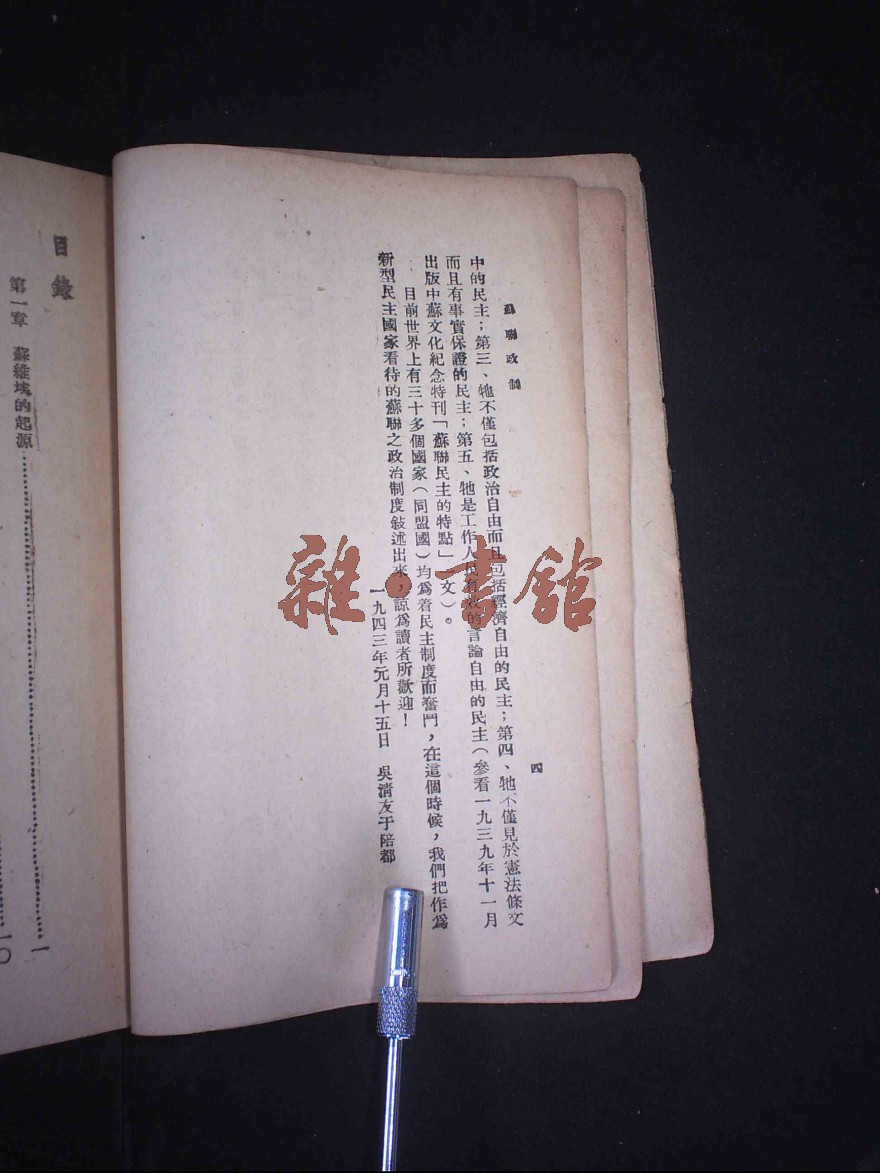 蘇聯政制
四
中的民主；第三、牠不僅包括政治自由而且包括經濟自由的民主；第四、牠不僅見於憲法條文
而且有事實保證的民主；第五、牠是工作人民有效的言論自由的民主（參看一九三九年十一月
出版中蘇文化紀念特刊「蘇聯民主的特點」一文）。
目前世界上有三十多個國家（同盟國）均爲着民主制度而奮鬥，在這個時候，我們把作爲
新型民主國家看待的蘇聯之政治制度敍述出來，諒爲讀者所歡迎！
一九四三年元月十五日　吳清友于陪都
目錄
第一章　蘇維埃的起源…………一
一〇
雜·書館